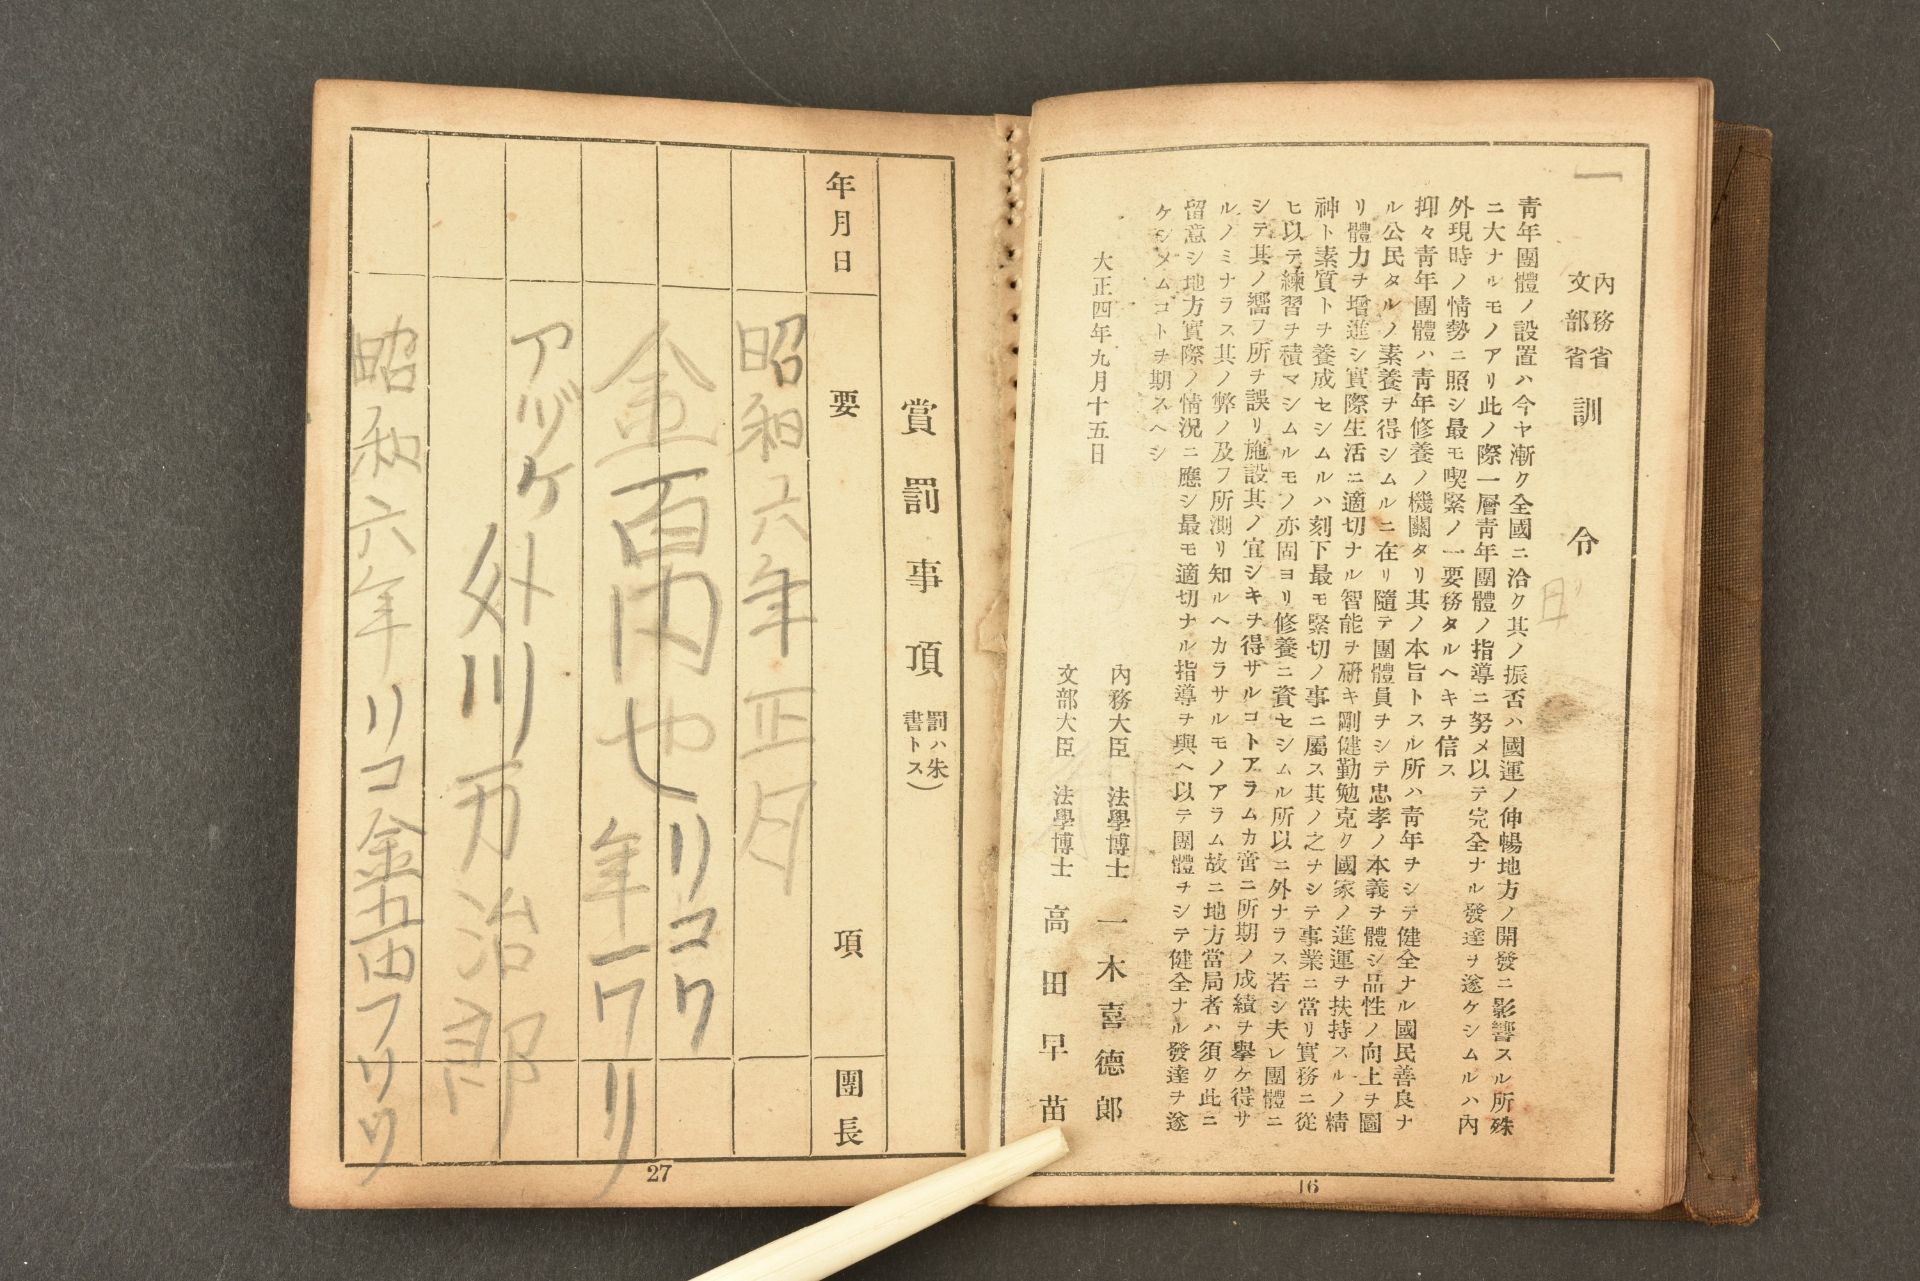 內務省
文部省
訓令
靑年團體ノ設置ハ今ヤ漸ク全國ニ洽ク其ノ振否ハ國運ノ伸暢地方ノ開發ニ影響スル所殊
ニ大ナルモノアリ此ノ際一層靑年團體ノ指導ニ努メ以テ完全ナル發達ヲ遂ケシムルハ內
外現時ノ情勢ニ照シ最モ喫緊ノ一要務タルヘキヲ信ス
抑々靑年團體ハ靑年修養ノ機關タリ其ノ本旨トスル所ハ靑年ヲシテ健全ナル國民善良ナ
ル公民タルノ素養ヲ得シムルニ在リ隨テ團體員ヲシテ忠孝ノ本義ヲ體シ品性ノ向上ヲ圖
リ體力ヲ增進シ實際生活ニ適切ナル智能ヲ硏キ剛健勤勉克ク國家ノ進運ヲ扶持スルノ精
神ト素質トヲ養成セシムルハ刻下最モ緊切ノ事ニ屬ス其ノ之ヲシテ事業ニ當リ實務ニ從
ヒ以テ練習ヲ積マシムルモノ亦固ヨリ修養ニ資セシムル所以ニ外ナラス若シ夫レ團體ニ
シテ其ノ嚮フ所ヲ誤リ施設其ノ宜シキヲ得サルコトアラムカ啻ニ所期ノ成績ヲ擧ケ得サ
ルノミナラス其ノ弊ノ及フ所測リ知ルヘカラサルモノアラム故ニ地方當局者ハ須ク此ニ
留意シ地方實際ノ情況ニ應シ最モ適切ナル指導ヲ與ヘ以テ團體ヲシテ健全ナル發達ヲ遂
ケシメムコトヲ期スヘシ
大正四年九月十五日
內務大臣 法學博士 一木喜德郎
文部大臣 法學博士 高田早苗
16
賞罰事項
罰ハ朱
書トス)
年月日
要項
團長
昭和六年正月
金百円也リコク
年一ワリ
アヅケト
外川万治郎
昭和六年リコ金五
27